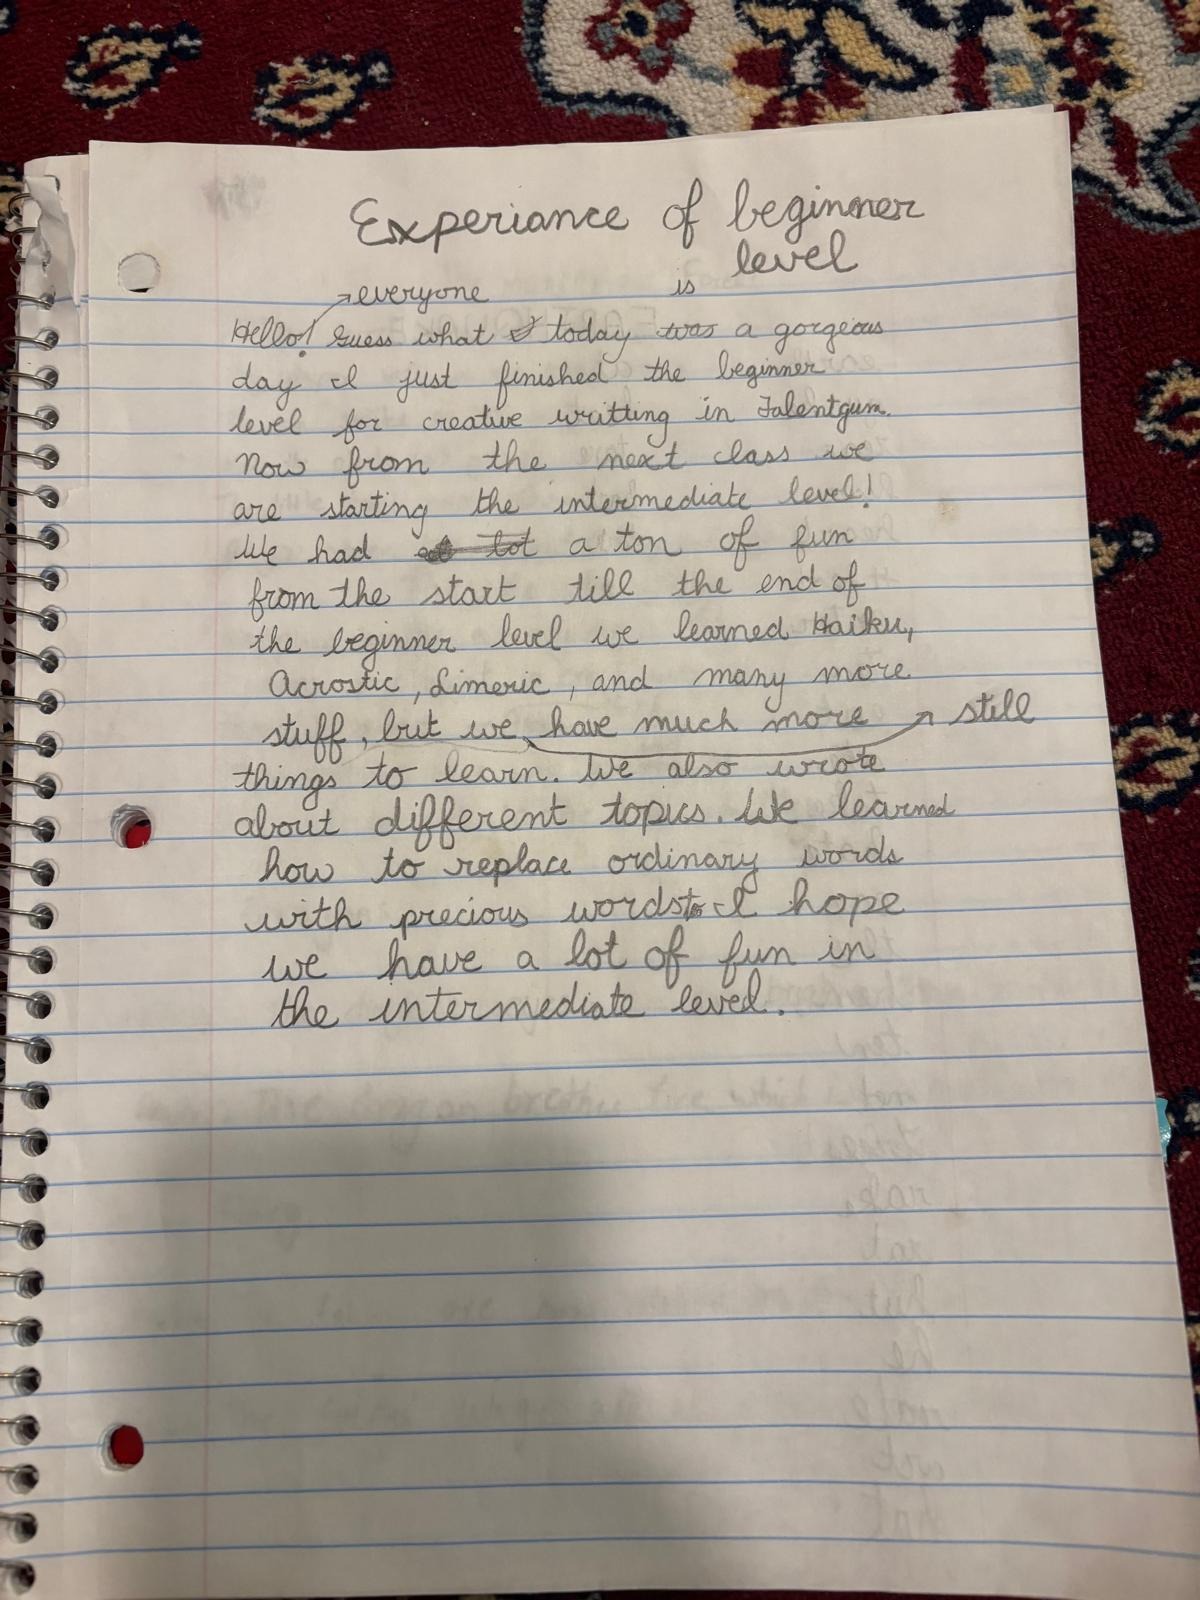 Experiance of beginner
level
everyone is
Hello! Guess what today was a gorgeous
day I just finished the beginner
level for creative writting in Talentgum.
Now from the next class we
are starting the intermediate level!
We had a lot a ton of fun
from the start till the end of
the beginner level we learned Haiku,
Acrostic, Limeric, and many more
stuff, but we have much more still
things to learn. We also wrote
about different topics. We learned
how to replace ordinary words
with precious words I hope
we have a lot of fun in
the intermediate level.